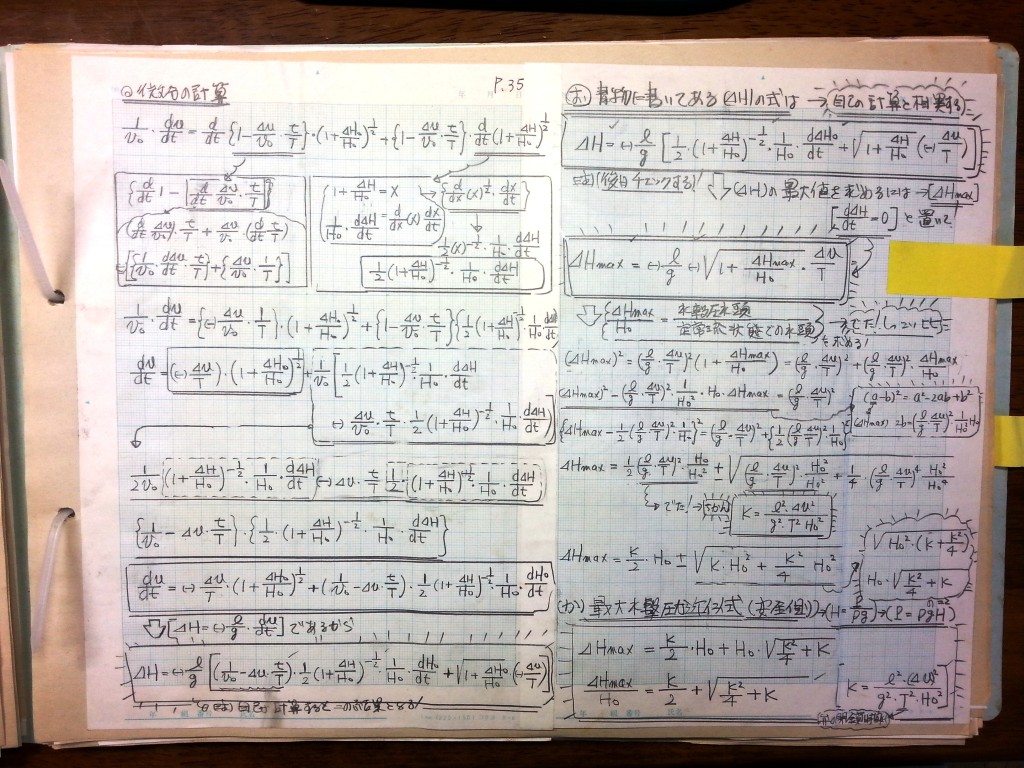 の計算
P.35
1/v₀・dv/dt = d/dt {1 - Δv/v₀・t/T}・(1+ΔH₀/H₀)^½ + {1 - Δv/v₀・t/T}・d/dt (1+ΔH₀/H₀)^½
{d/dt 1 - [d/dt Δv/v₀・t/T]}
(d/dt Δv/v₀)・t/T + Δv/v₀・(d/dt t/T)
(-)[{1/v₀・dΔv/dt・t/T}+{Δv/v₀・1/T}]
{1+ΔH/H₀ = x
1/H₀・dΔH/dt = d/dx (x) dx/dt
{d/dx (x)^½・dx/dt}
½(x)^-½・1/H₀・dΔH/dt
½(1+ΔH/H₀)^-½・1/H₀・dΔH/dt
1/v₀・dv/dt = {(-)Δv/v₀・1/T}・(1+ΔH/H₀)^½ + {1 - Δv/v₀・t/T}{½(1+ΔH/H₀)^-½・1/H₀ dΔH/dt
dv/dt = (-)Δv/T・(1+ΔH₀/H₀)^½ + 1/v₀ [½(1+ΔH/H₀)^-½・1/H₀・dΔH/dt
(-)Δv/v₀・t/T・½(1+ΔH/H₀)^-½・1/H₀・dΔH/dt]
1/2v₀ (1+ΔH/H₀)^-½・1/H₀・dΔH/dt (-)Δv・t/T ½・(1+ΔH/H₀)^-½ 1/H₀・dΔH/dt
{1/v₀ - Δv・t/T}・{½・(1+ΔH/H₀)^-½ 1/H₀・dΔH/dt}
dv/dt = (-)Δv/T・(1+ΔH₀/H₀)^½ + (1/v₀ - Δv・t/T)・½(1+ΔH/H₀)^-½ 1/H₀・dH₀/dt
⇩[ΔH=(-)ℓ/g・dv/dt]であるから
ΔH=(-)ℓ/g [(1/v₀ - Δv・t/T)・½(1+ΔH/H₀)^-½・1/H₀・dH₀/dt + √(1+ΔH₀/H₀) (-Δv/T)]
計算すると
(お) 書物に書いてある(ΔH)の式は → 自己の計算と相異する
ΔH=(-)ℓ/g [½・(1+ΔH/H₀)^-½・1/H₀・dΔH₀/dt + √(1+ΔH/H₀) (-)(Δv/T)]
後日チェックする! ⇩(ΔH)の最大値を求めるには→[ΔHmax]
[dΔH/dt=0]と置いて
ΔHmax = (-)ℓ/g (-)√(1+ΔHmax/H₀)・Δv/T
⇩{ΔHmax/H₀ = 水撃圧水頭/定常流状態での水頭}
を求める!
(ΔHmax)² = (ℓ/g・Δv/T)²(1+ΔHmax/H₀) = (ℓ/g・Δv/T)² + (ℓ/g・Δv/T)²・ΔHmax/H₀
(ΔHmax)² - (ℓ/g・Δv/T)² 1/H₀²・H₀・ΔHmax = (ℓ/g・Δv/T)²
(a-b)² = a²-2ab+b²
(ΔHmax) 2b=(ℓ/g・Δv/T)² 1/H₀² H₀
{ΔHmax - ½(ℓ/g・Δv/T)² 1/H₀²} = (ℓ/g・Δv/T)² + {½(ℓ/g・Δv/T)² 1/H₀}²
ΔHmax = ½(ℓ/g・Δv/T)²・H₀/H₀² ± √((ℓ/g・Δv/T)² H₀²/H₀² + ¼・(ℓ/g・Δv/T)⁴ H₀²/H₀⁴)
でた!→ちかん K = ℓ²・Δv²/g²T²H₀²
ΔHmax = K/2・H₀ ± √(K・H₀² + K²/4 H₀²)
√(H₀²・(K+K²/4))
H₀・√(K²/4+K)
(か) 最大水撃圧近似式
ΔHmax = K/2・H₀ + H₀・√(K²/4+K)
ΔHmax/H₀ = K/2 + √(K²/4+K)
K = ℓ²・(Δv)²/g²・T²・H₀²